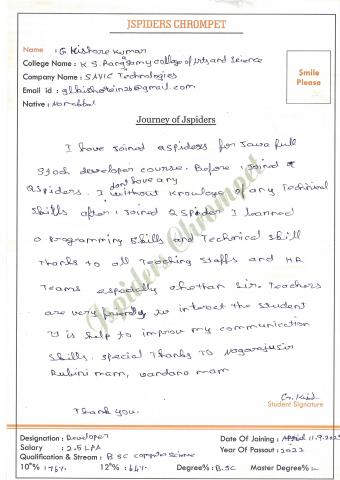 JSPIDERS CHROMPET
Name : G. Kishore Kumar
College Name : K S. Rangasamy college of Arts and Science
Company Name : SAVIC Technologies
Email id :
Native : Namakkal
Smile
Please
Journey of Jspiders
I have joined aspiders for Java full
Stack developer course. Before I joined
Qspiders. I don't have any without knowledge of any Technical
Skills after I Joined QSpider I learned
a programming Skills and Technical Skill
Thanks to all Teaching Staffs and HR
Teams especially Sir. Teachers
are very friendly to interact the Student
is help to improve my communication
Skills. Special Thanks TO Nagarajusir
Rubini mam, vandana mam
Thank you.
Student Signature
Jspiders Chrompet
Designation : Developer
Date Of Joining : 11.9.2023
Salary : 2.5 LPA
Year Of Passout : 2022
Qualification & Stream : B SC computer Science
10th% : 76%
12th% : 66%
Degree% : B.SC
Master Degree% :